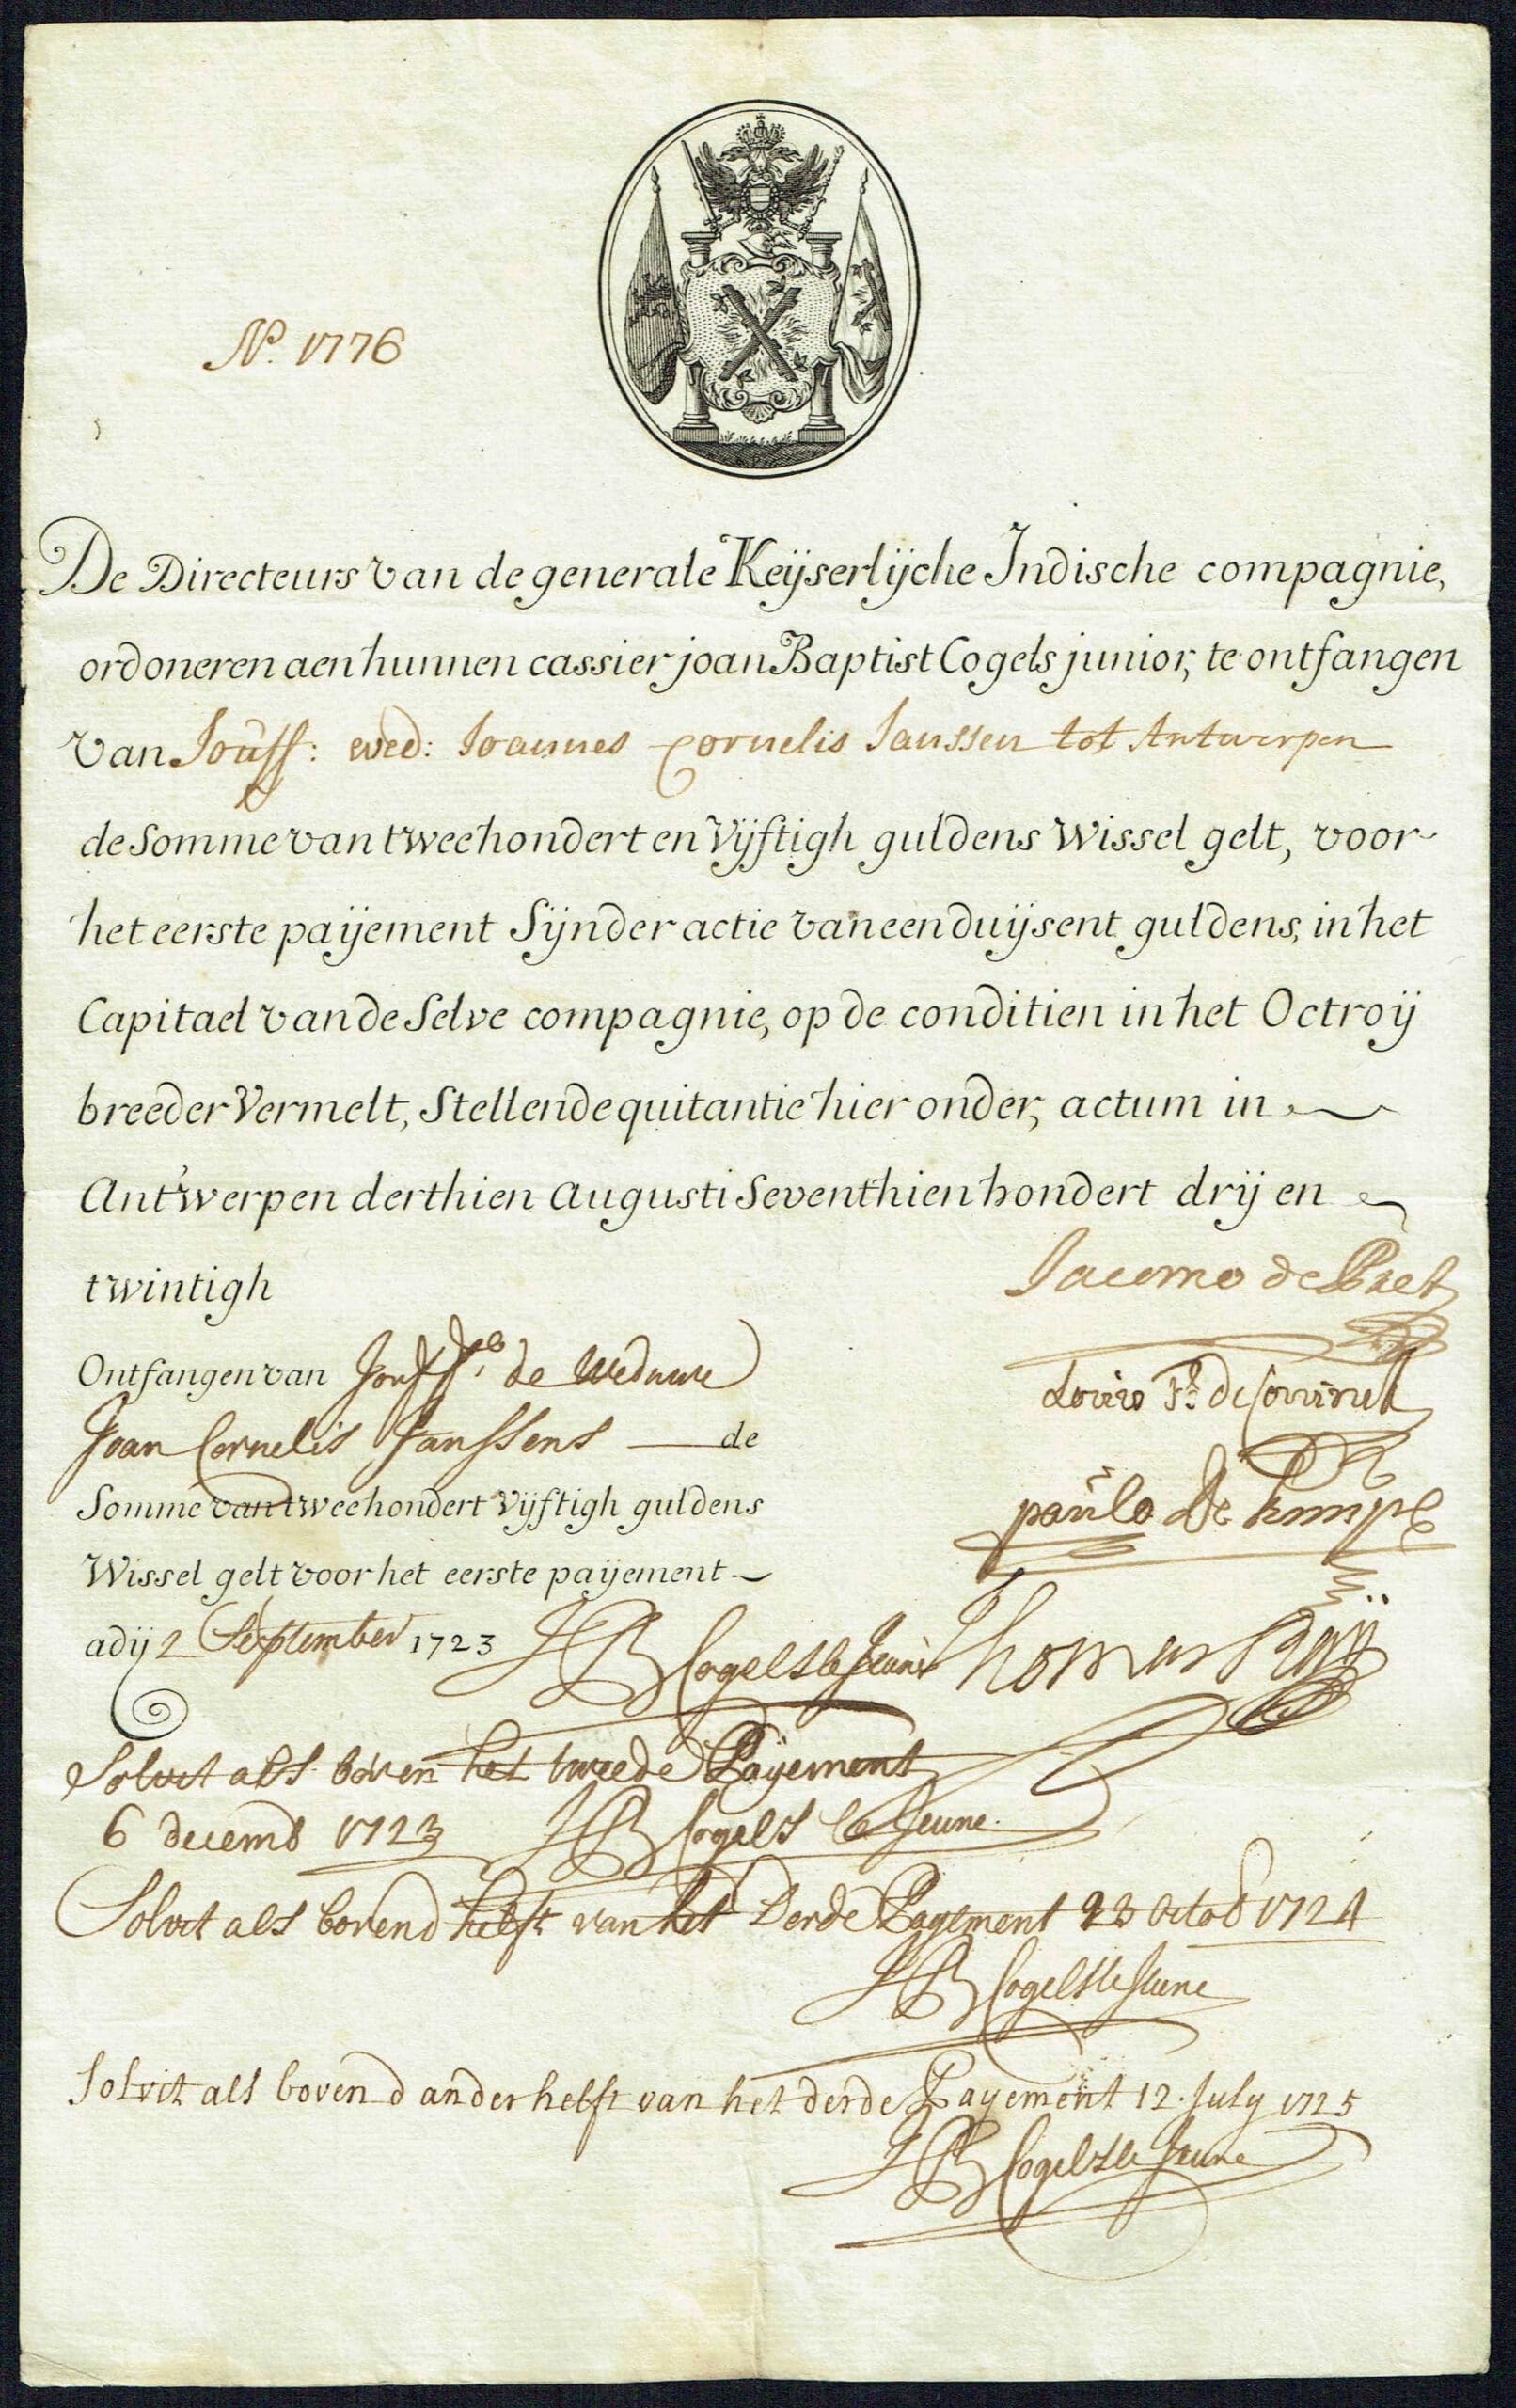 N.º 1776
De Directeurs van de generale Keijserlijche Indische compagnie,
ordoneren aen hunnen cassier joan Baptist Cogels junior, te ontfangen
van Jouff: wed: Joannes Cornelis Janssen tot Antwerpen
de Somme van tweehondert en Vijftigh guldens Wissel gelt, voor
het eerste paijement Sijnder actie van een duijsent guldens, in het
Capitael van de Selve compagnie, op de conditien in het Octroij
breeder Vermelt, Stellende quitantie hier onder, actum in
Antwerpen derthien Augusti Seventhien hondert drij en
twintigh
Jacomo de Pret
Ontfangen van Jouffe. de Weduwe
Louis Fs. de Coninck
Joan Cornelis Janssens — de
Somme van tweehondert Vijftigh guldens
paulo De Kimpe
Wissel gelt voor het eerste paijement
adij 2 September 1723 JB Cogels le Jeune
Thomas Ray
Solvit als boven het tweede Payement
6 decemb 1723 JB Cogels le Jeune.
Solvit als boven d helft van het Derde Payement 23 octob 1724
JB Cogels le Jeune
Solvit als boven d ander helft van het derde Payement 12. July 1725
JB Cogels le Jeune